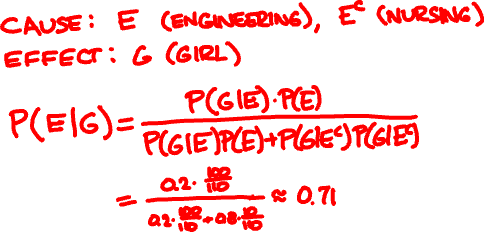 CAUSE: E (ENGINEERING), Eᶜ (NURSING)
EFFECT: G (GIRL)
P(E|G) = P(G|E)·P(E) / P(G|E)P(E)+P(G|Eᶜ)P(G|Eᶜ)
= 0.2·100/110 / 0.2·100/110+0.8·10/110 ≈ 0.71